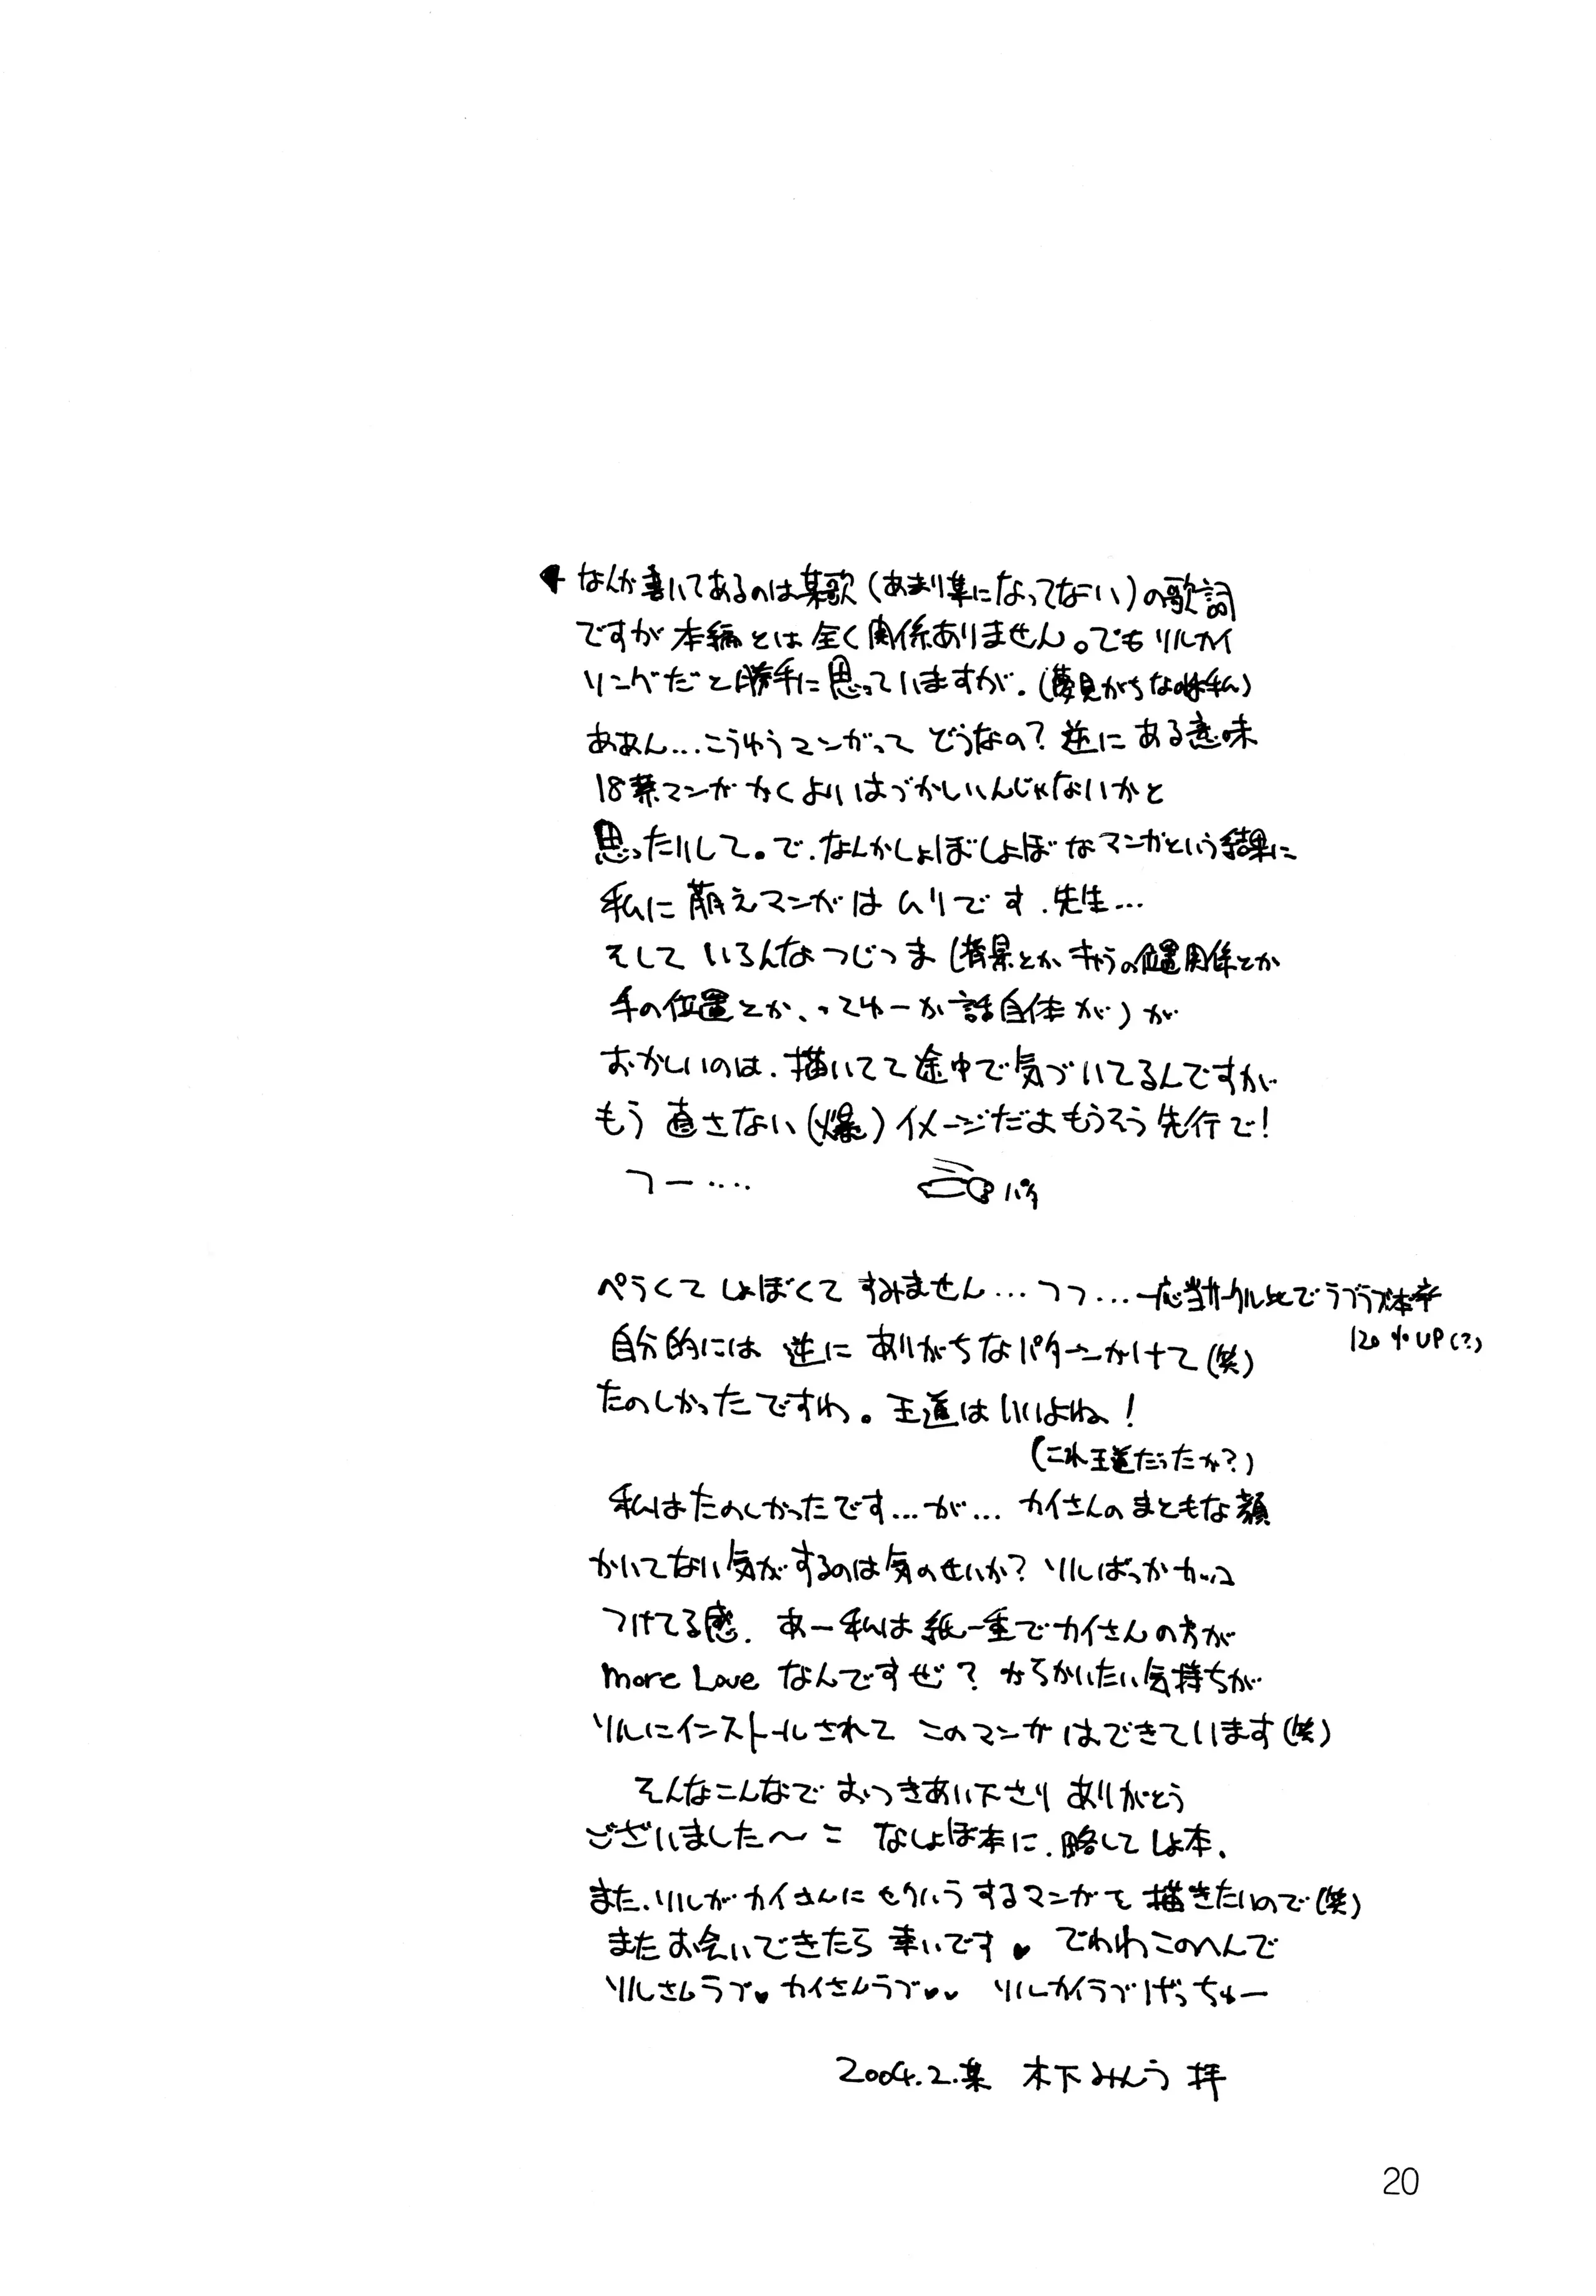 なんか書いてあるのは某歌(あまり某になってない)の歌詞
ですが本編とは全く関係ありません。でもソルカイ
ソングだと勝手に思っていますが。(夢見がちな 私)
ああん…こうゆうマンガって どうなの？逆に ある意味
18禁マンガ かくよりはづかしいんじゃないかと
思ったりして。で、なんかしょぼしょぼなマンガという結果に
私に萌えマンガは ムリです、先生…
そして いろんなつじつま(背景とか、キャラの位置関係とか
手の位置とか、ってゆーか話自体が)が
おかしいのは、描いてて途中で気づいてるんですが
もう 直さない(爆)イメージだよもうそう先行で！
フー‥‥
パタ
ぺらくて しょぼくて すみません…フフ…一応当サークル比でラブラブ本率
120%UP(?)
自分的には 逆に ありがちなパターンかけて(笑)
たのしかったですわ。王道はいいよね！
(これ王道だったか？)
私はたのしかったです…が… カイさんのまともな顔
かいてない気がするのは気のせいか？ソルばっかカッコ
つけてる感。あー私は紙一重でカイさんの方が
more Love なんですぜ？からかいたい気持ちが
ソルにインストールされて このマンガはできています(笑)
そんなこんなで おつきあい下さり ありがとう
ございました〜 こ なしょぼ本に、略してしょ本。
また、ソルがカイさんに するマンガを 描きたいので(笑)
またお会いできたら 幸いです♥ でわわこのへんで
ソルさんラブ♥カイさんラブ♥♥ ソルカイラブげっちゅー
2004.2.某 木下みんう 拝
20